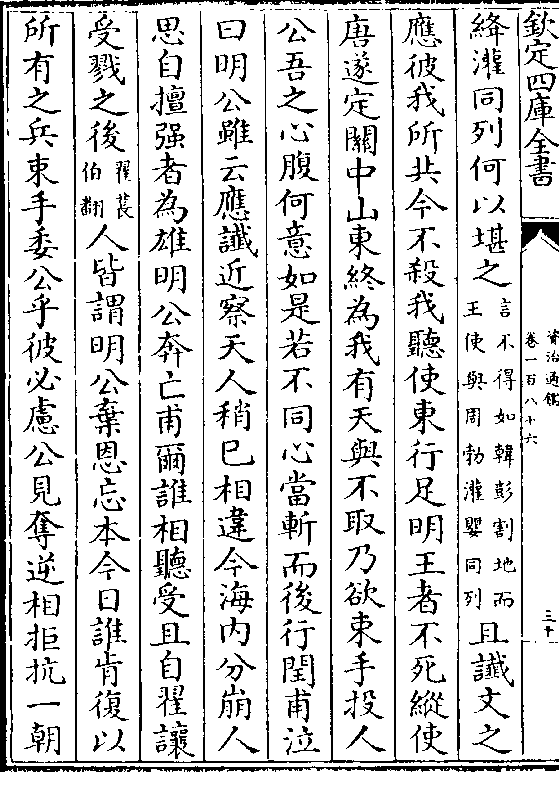 欽定四庫全書
資治通鑑
卷一百八十六
三十
絳灌同列何以堪之言不得如韓彭割地而王使與周勃灌嬰同列且讖文之
應彼我所共今不殺我聽使東行足明王者不死縱使
唐遂定關中山東終為我有天與不取乃欲束手投人
公吾之心腹何意如是若不同心當斬而後行閏甫泣
曰明公雖云應讖近察天人稍已相違今海内分崩人
思自擅强者為雄明公奔亡甫爾誰相聽受且自翟讓
受戮之後翟萇伯翻人皆謂明公棄恩忘本今日誰肯復以
所有之兵束手委公乎彼必慮公見奪逆相拒抗一朝